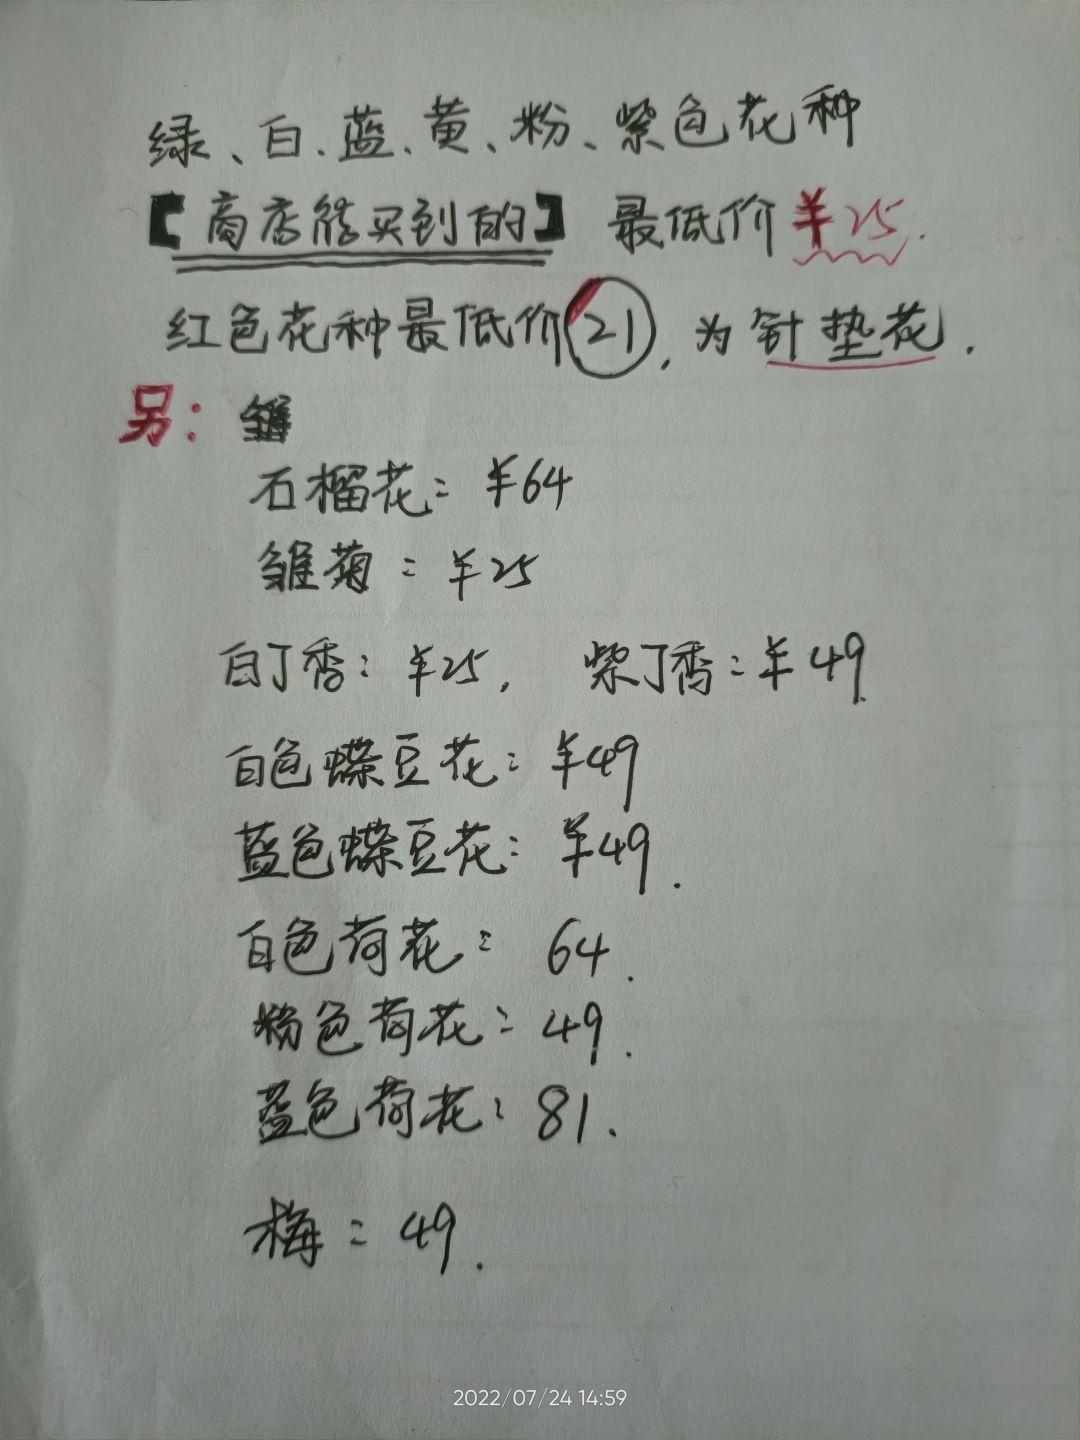 绿、白、蓝、黄、粉、紫色花种
【商店能买到的】 最低价¥25.
红色花种最低价21,为针垫花.
另:
石榴花:¥64
雏菊:¥25
白丁香:¥25, 紫丁香:¥49.
白色蝶豆花:¥49
蓝色蝶豆花:¥49.
白色荷花: 64.
粉色荷花:49.
蓝色荷花:81.
梅:49.
2022/07/24 14:59